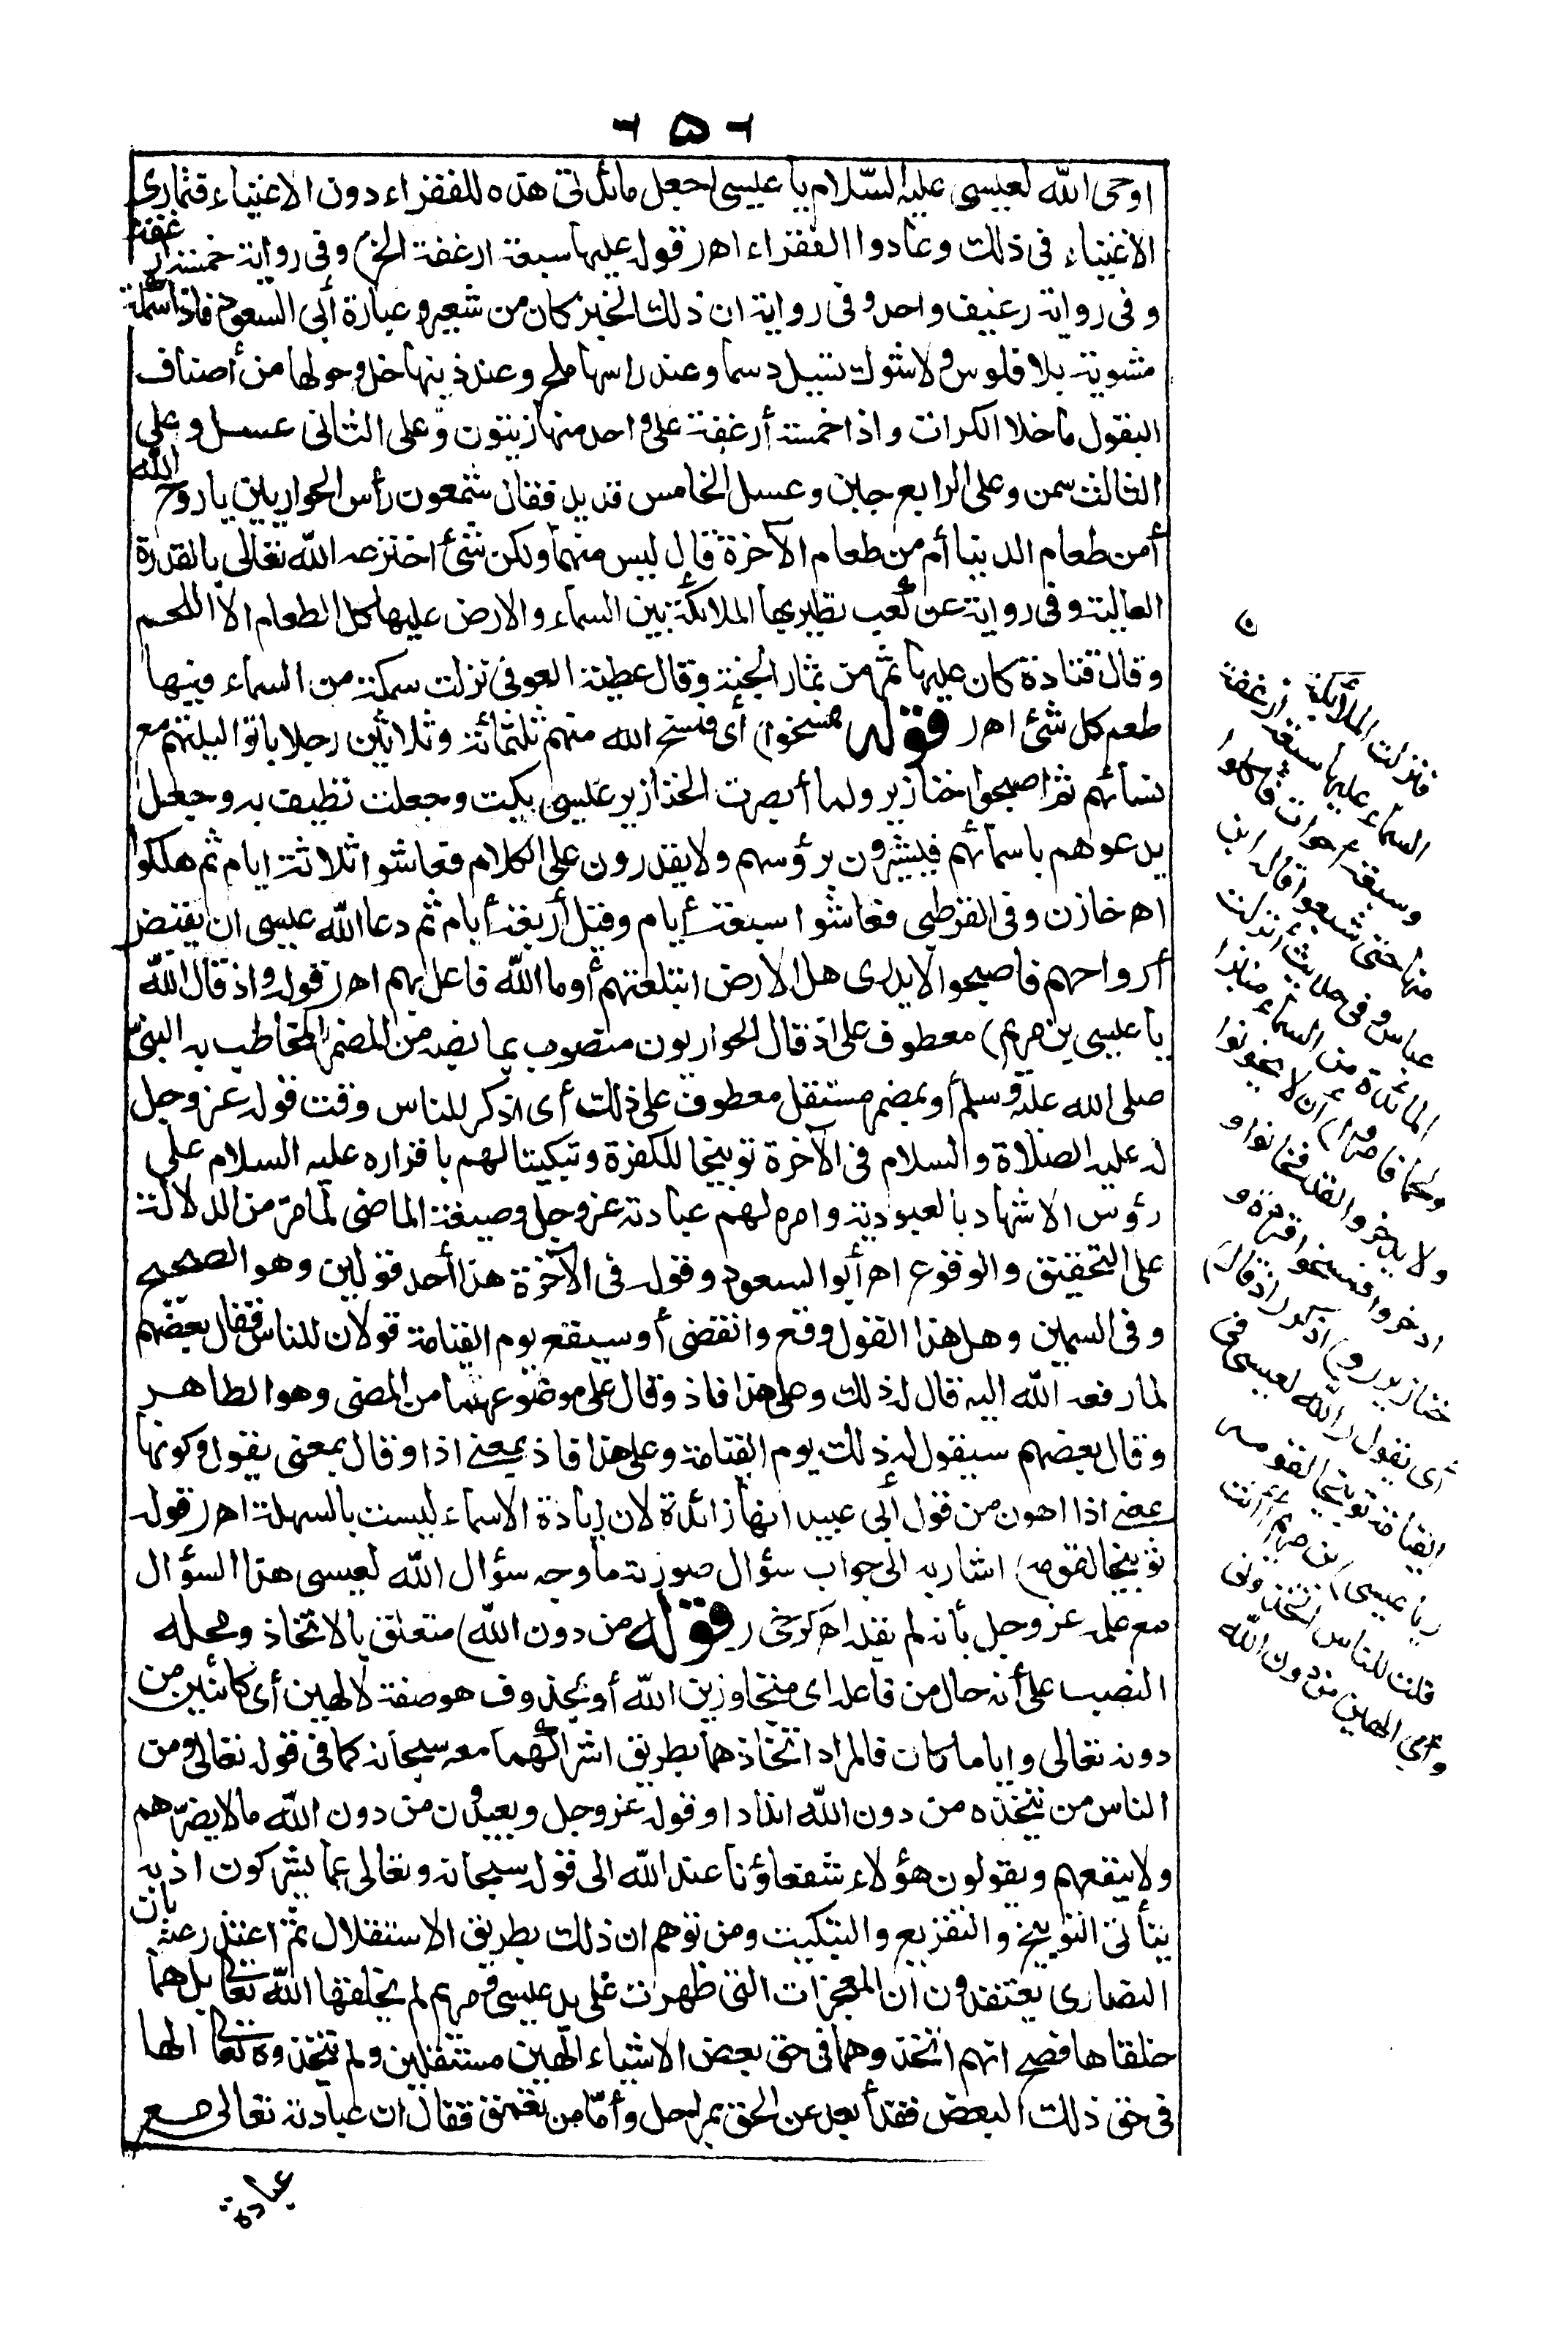 -۵-
اوحى الله لعيسى عليه السّلام يا عيسى اجعل مائدتى هذه للفقراء دون الاغنياء فتمارى
الاغنياء فى ذلك وعادوا الفقراء اهـ (قوله عليها سبعة ارغفة الخ) وفى رواية خمسة ارغفة
وفى رواية رغيف واحد وفى رواية ان ذلك الخبز كان من شعير وعبارة أبى السعود فاذا سمكة
مشوية بلا فلوس ولا شوك تسيل دسما وعند راسها ملح وعند ذنبها خل وحولها من أصناف
البقول ما خلا الكراث واذا خمسة أرغفة على واحد منها زيتون وعلى الثانى عسل وعلى
الثالث سمن وعلى الرابع جبن وعلى الخامس قديد فقال شمعون رأس الحواريين يا روح الله
أمن طعام الدنيا أم من طعام الآخرة قال ليس منهما ولكن شئ اخترعه الله تعالى بالقدرة
العالية وفى رواية عن كعب تطير بها الملائكة بين السماء والارض عليها كل الطعام الا اللحم
وقال قتادة كان عليها ثمر من ثمار الجنة وقال عطية العوفى نزلت سمكة من السماء فيها
طعم كل شئ اهـ (قوله فمسخوا) أى فمسخ الله منهم ثلثمائة وثلاثين رجلا باتوا ليلتهم مع
نسائهم ثم اصبحوا خنازير ولما أبصرت الخنازير عيسى بكت وجعلت تطيف به وجعل
يدعوهم باسمائهم فيشيرون برؤسهم ولا يقدرون على الكلام فعاشوا ثلاثة ايام ثم هلكوا
اهـ خازن وفى القرطبى فعاشوا سبعة أيام وقيل أربعة أيام ثم دعا الله عيسى ان يقبض
أرواحهم فاصبحوا لا يدرى هل الارض ابتلعتهم أو ما الله فاعل بهم اهـ (قوله واذ قال الله
يا عيسى بن مريم) معطوف على اذ قال الحواريون منصوب بما نصبه من المضمر المخاطب به النبى
صلى الله عليه وسلم أو بمضمر مستقل معطوف على ذلك أى اذكر للناس وقت قوله عز وجل
له عليه الصلاة والسلام فى الآخرة توبيخا للكفرة وتبكيتا لهم باقراره عليه السلام على
رؤس الاشهاد بالعبودية وامره لهم عبادته عز وجل وصيغة الماضى لما مرّ من الدلالة
على التحقيق والوقوع اهـ أبو السعود وقوله فى الآخرة هذا أحد قولين وهو الصحيح
وفى السمين وهل هذا القول وقع وانقضى أو سيقع يوم القيامة قولان للناس فقال بعضهم
لما رفعه الله اليه قال له ذلك وعلى هذا فاذ وقال على موضوعهما من المضى وهو الظاهر
وقال بعضهم سيقول له ذلك يوم القيامة وعلى هذا فاذ بمعنى اذا وقال بمعنى يقول وكونها
بمعنى اذا اهون من قول أبى عبيد انها زائدة لان زيادة الاسماء ليست بالسهلة اهـ (قوله
توبيخا لقومه) اشار به الى جواب سؤال صورته ما وجه سؤال الله لعيسى هذا السؤال
مع علمه عز وجل بأنه لم يقله اهـ كرخى (قوله من دون الله) متعلق بالاتخاذ ومحله
النصب على أنه حال من فاعله اى متجاوزين الله أو بمحذوف هو صفة لالهين أى كائنين من
دونه تعالى وايا ما كان فالمراد اتخاذهما بطريق اشراكهما معه سبحانه كما فى قوله تعالى ومن
الناس من يتخذ من دون الله اندادا وقوله عز وجل ويعبدون من دون الله ما لا يضرّهم
ولا ينفعهم ويقولون هؤلاء شفعاؤنا عند الله الى قوله سبحانه وتعالى عما يشركون اذ به
يتأتى التوبيخ والتقريع والتبكيت ومن توهم ان ذلك بطريق الاستقلال ثم اعتذر عنه بان
النصارى يعتقدون ان المعجزات التى ظهرت على يد عيسى ومريم لم يخلقها الله تعالى بل هما
خلقاها فصح انهم اتخذوهما فى حق بعض الاشياء الهين مستقلين ولم يتخذوه تعالى الها
فى حق ذلك البعض فقد أبعد عن الحق بمراحل وأمّا من تعمق فقال ان عبادته تعالى مع
عبادة
فنزلت الملائكة
السماء عليها سبعة ارغفة
وسبعة احوات فاكلوا
منها حتى شبعوا قاله ابن
عباس وفى حديث أنزلت
المائدة من السماء خبزا
ولحما فامروا أن لا يخونوا
ولا يدخروا لغد فخانوا و
ادخروا فمسخوا قردة و
خنازير (و) اذكر (اذ قال)
أى يقول (الله) لعيسى فى
القيامة توبيخا لقومه
(يا عيسى ابن مريم أأنت
قلت للناس اتخذونى
وأمى الهين من دون الله